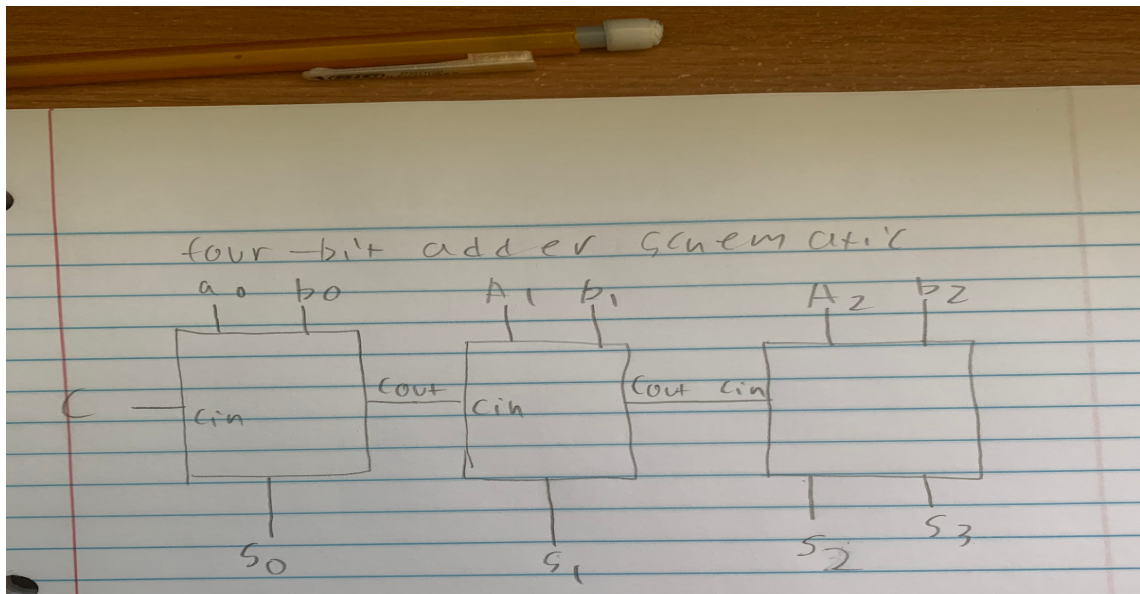 four-bit adder schematic
a0 b0 A1 b1 A2 b2
C cin Cout Cin Cout Cin
S0 S1 S2 S3